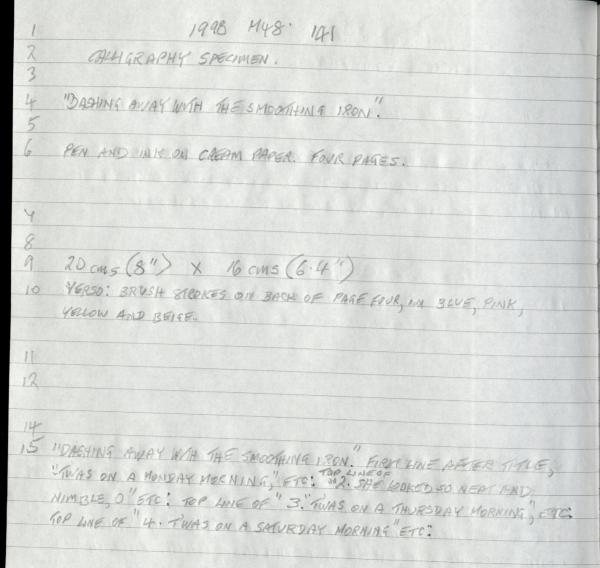 1 1998 M48. 141
2 CALLIGRAPHY SPECIMEN.
3
4 "DASHING AWAY WITH THE SMOOTHING IRON".
5
6 PEN AND INK ON CREAM PAPER. FOUR PAGES.
7
8
9 20 cms (8") X 16 cms (6.4")
10 VERSO: BRUSH STROKES ON BACK OF PAGE FOUR, IN BLUE, PINK,
YELLOW AND BEIGE.
11
12
14
15 "DASHING AWAY WITH THE SMOOTHING IRON". FIRST LINE AFTER TITLE,
"TWAS ON A MONDAY MORNING," ETC: TOP LINE OF "2. SHE LOOKED SO NEAT AND
NIMBLE, O" ETC: TOP LINE OF "3. TWAS ON A THURSDAY MORNING", ETC:
TOP LINE OF "4. TWAS ON A SATURDAY MORNING" ETC: